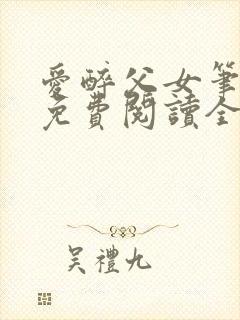 愛醉父女筆
免費閱讀全
吳禮九